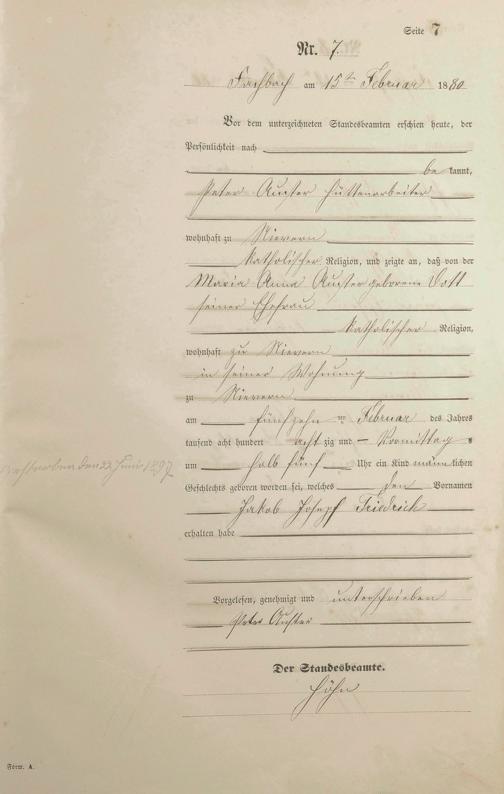 Seite 7
Nr. 7.
Fachbach am 15ten Februar 1880
Vor dem unterzeichneten Standesbeamten erschien heute, der
Persönlichkeit nach
be kannt,
Peter Auster Hüttenarbeiter
wohnhaft zu Nievern
katholischer Religion, und zeigte an, daß von der
Maria Anna Auster geborene Dott
seiner Ehefrau
katholischer Religion,
wohnhaft zu Nievern
in seiner Wohnung
zu Nievern
am fünfzehn ten Februar des Jahres
tausend acht hundert acht zig und — Vormittag s
um halb fünf Uhr ein Kind männ lichen
Geschlechts geboren worden sei, welches den Vornamen
Jakob Josepf Friedrich
erhalten habe
Vorgelesen, genehmigt und unterschrieben
Peter Auster
Der Standesbeamte.
Höhn
den 22 Juni 1897
Form. A.